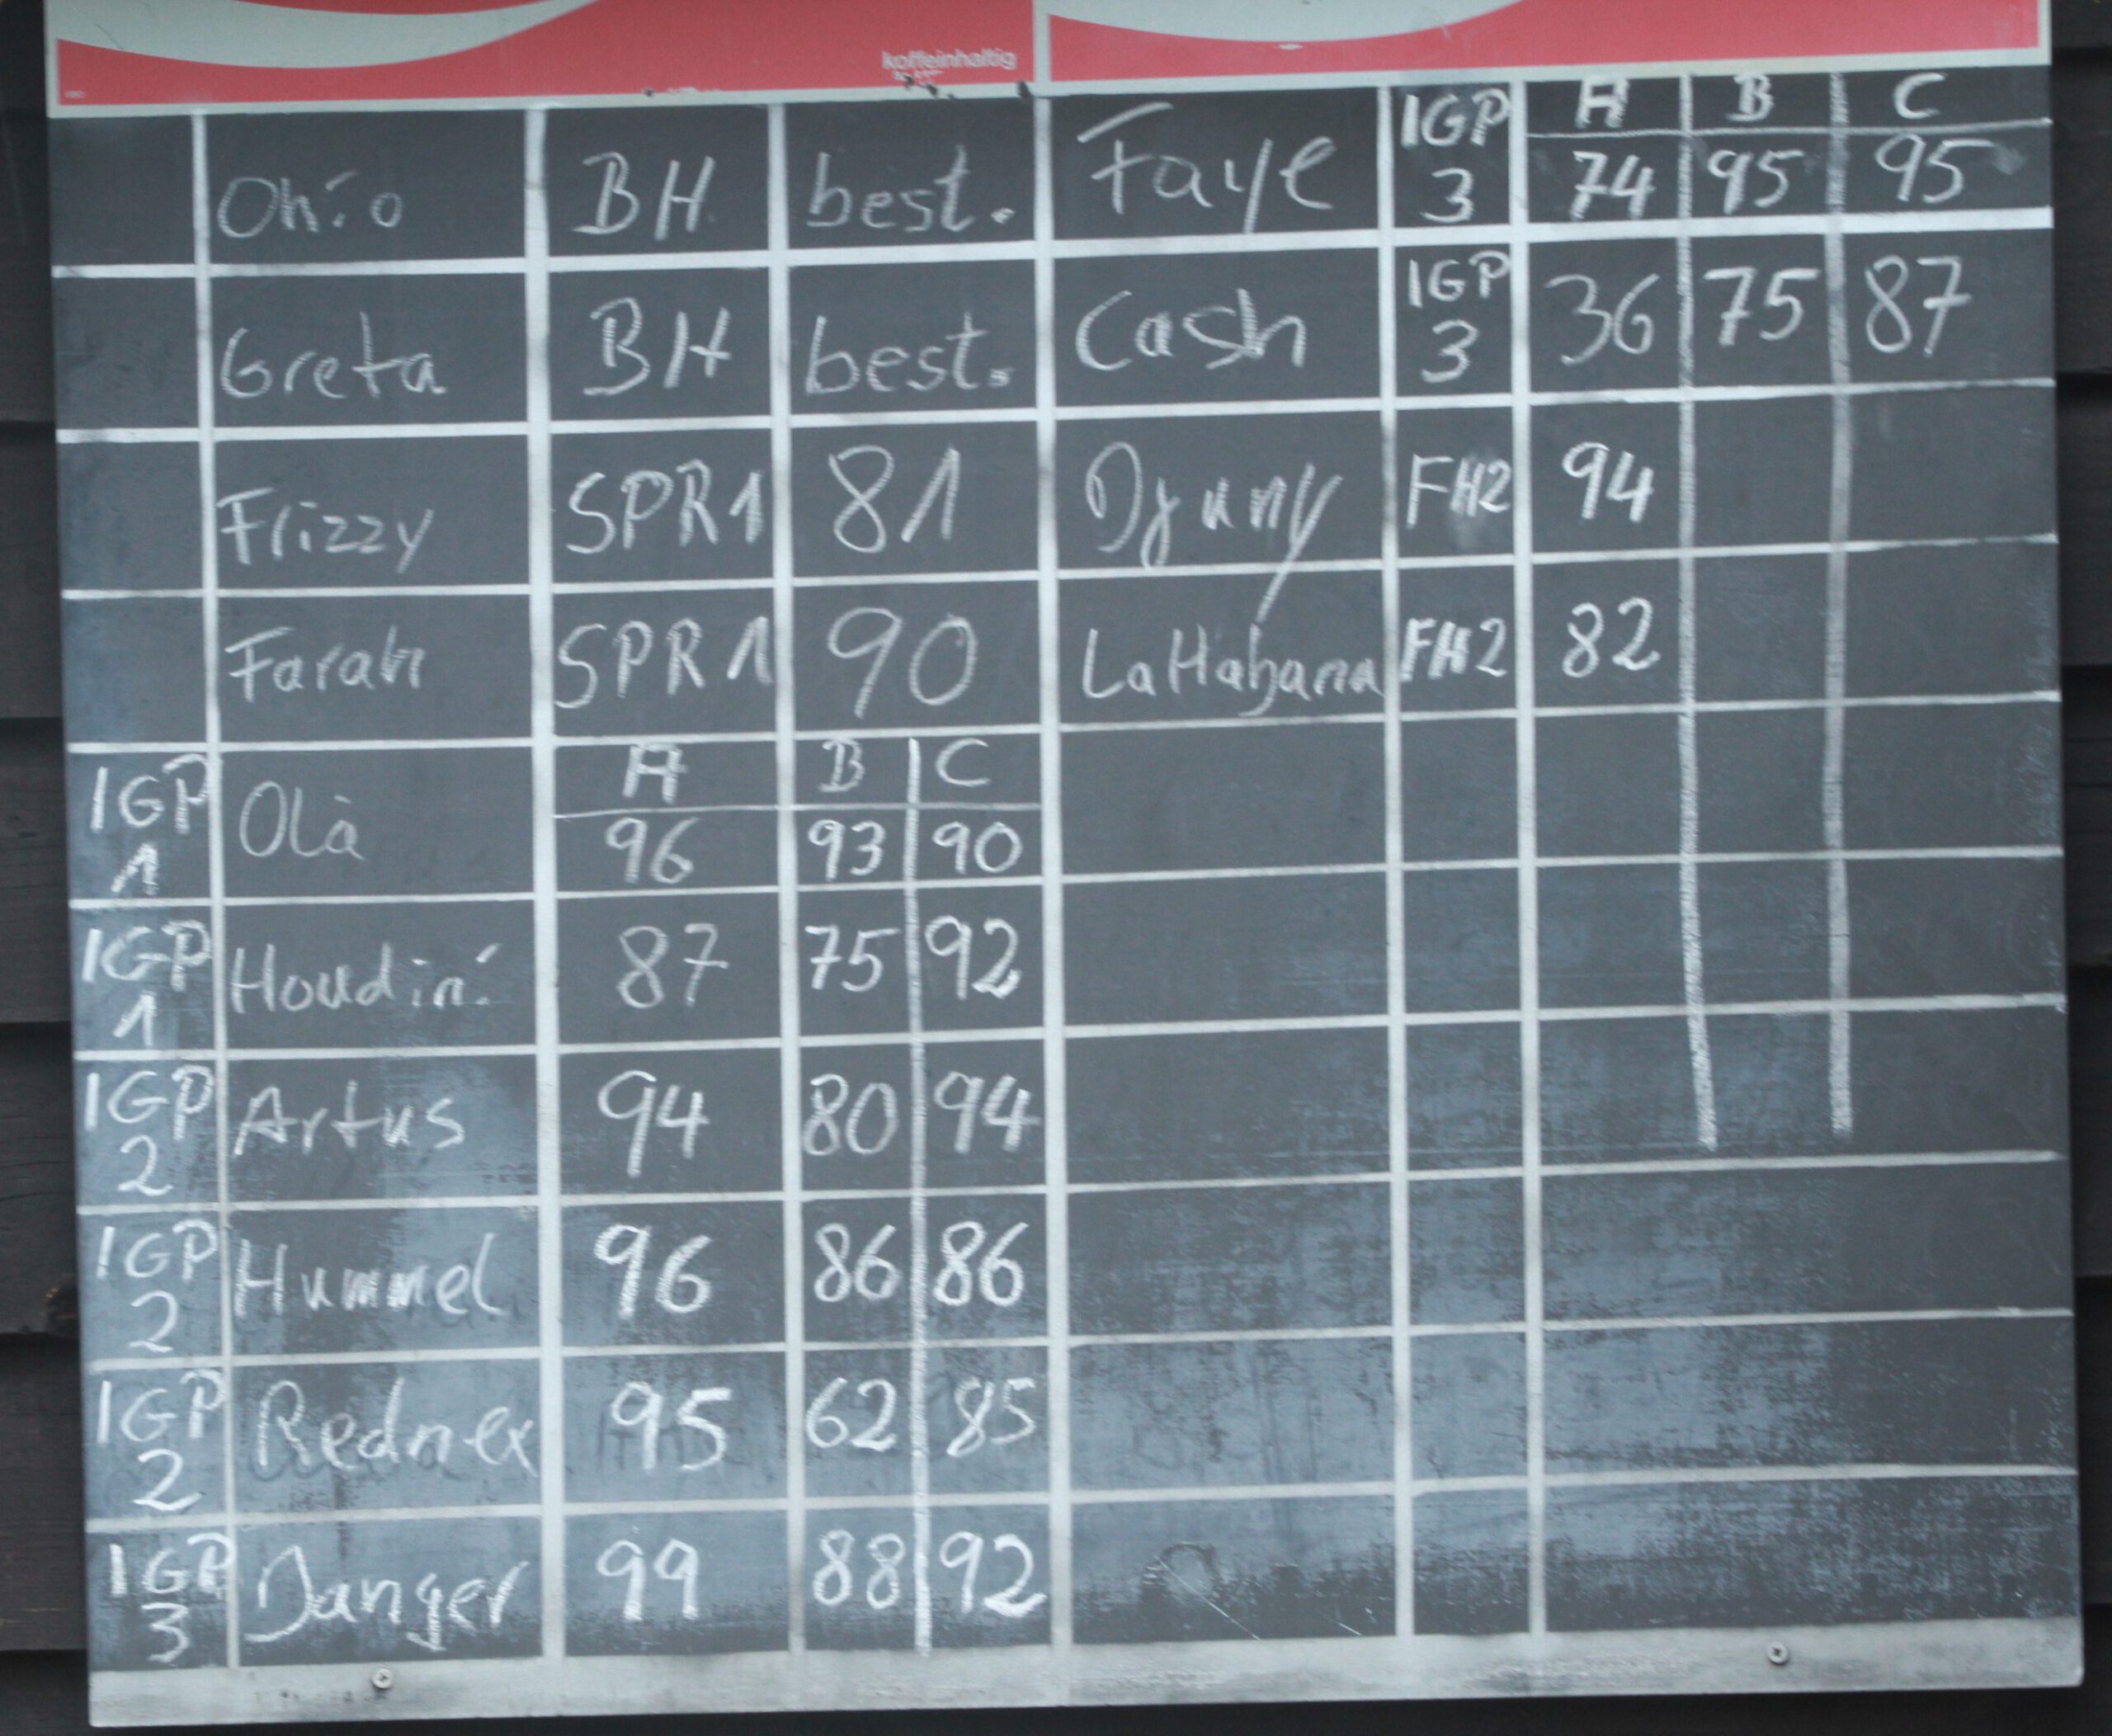 koffeinhaltig
Ohio BH best.
Greta BH best.
Frizzy SPR1 81
Farah SPR1 90
A B C
IGP 1 Olà 96 93 90
IGP 1 Houdini 87 75 92
IGP 2 Artus 94 80 94
IGP 2 Hummel 96 86 86
IGP 2 Rednex 95 62 85
IGP 3 Danger 99 88 92
A B C
Faye IGP 3 74 95 95
Cash IGP 3 36 75 87
FH2 94
LaHabana FH2 82